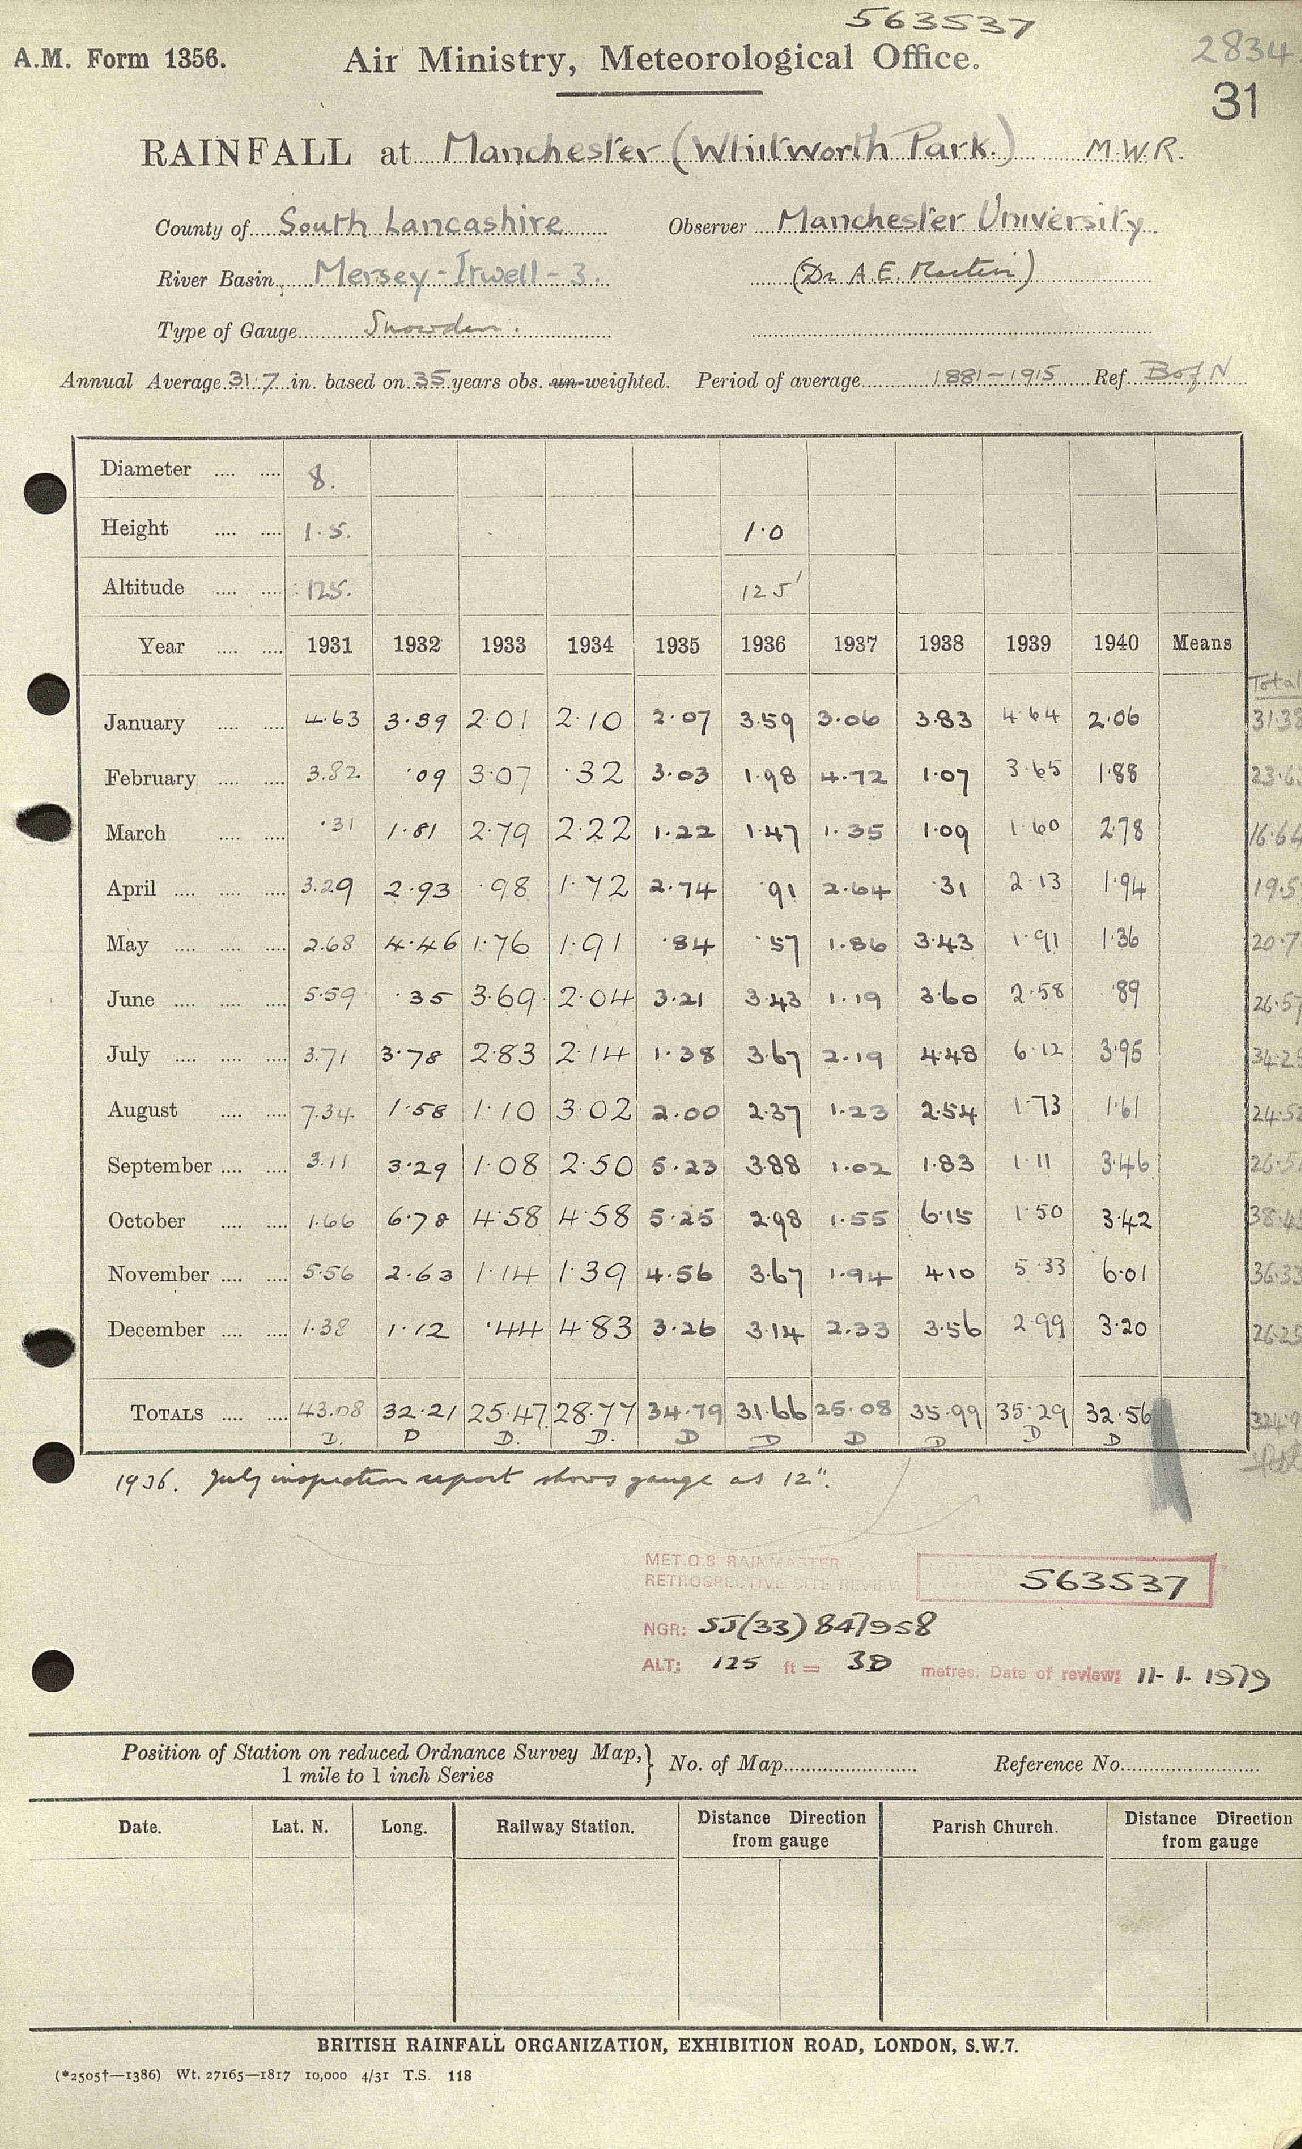 563537
2834
A.M. Form 1356. Air Ministry, Meteorological Office.
31
RAINFALL at Manchester (Whitworth Park.) M.W.R.
County of South Lancashire Observer Manchester University
River Basin, Mersey-Irwell-3. (Dr A.E. Martin)
Type of Gauge Snowdon.
Annual Average 31.7 in. based on 35 years obs. un-weighted. Period of average 1881-1915 Ref. B of N
Diameter 8.
Height 1.5. 1.0
Altitude 125. 125'
Year 1931 1932 1933 1934 1935 1936 1937 1938 1939 1940 Means
Total
January 4.63 3.39 2.01 2.10 2.07 3.59 3.06 3.83 4.64 2.06 31.38
February 3.82 .09 3.07 .32 3.03 1.98 4.72 1.07 3.65 1.88 23.6
March .31 1.81 2.79 2.22 1.22 1.47 1.35 1.09 1.60 2.78 16.64
April 3.29 2.93 .98 1.72 2.74 .91 2.64 .31 2.13 1.94 19.5
May 2.68 4.46 1.76 1.91 .84 .57 1.86 3.43 1.91 1.36 20.7
June 5.59 .35 3.69 2.04 3.21 3.43 1.19 3.60 2.58 .89 26.57
July 3.71 3.78 2.83 2.14 1.38 3.67 2.19 4.48 6.12 3.95 34.25
August 7.34 1.58 1.10 3.02 2.00 2.37 1.23 2.54 1.73 1.61 24.52
September 3.11 3.29 1.08 2.50 5.23 3.88 1.02 1.83 1.11 3.46 26.51
October 1.66 6.78 4.58 4.58 5.25 2.98 1.55 6.15 1.50 3.42 38.45
November 5.56 2.63 1.14 1.39 4.56 3.67 1.94 4.10 5.33 6.01 36.33
December 1.38 1.12 .44 4.83 3.26 3.14 2.33 3.56 2.99 3.20 26.25
TOTALS 43.08 32.21 25.47 28.77 34.79 31.66 25.08 35.99 35.29 32.56 324.9
D. D D. D. D D D D D D
1936. July inspection report shows gauge as 12".
MET.O.8 RAINMASTER
RETROSPECTIVE SITE REVIEW 563537
NGR: SJ(33)847958
ALT: 125 ft = 38 metres. Date of review: 11.1.1979
Position of Station on reduced Ordnance Survey Map, 1 mile to 1 inch Series } No. of Map Reference No.
Date. Lat. N. Long. Railway Station. Distance Direction from gauge Parish Church. Distance Direction from gauge
BRITISH RAINFALL ORGANIZATION, EXHIBITION ROAD, LONDON, S.W.7.
(*2505†—1386) Wt. 27165—1817 10,000 4/31 T.S. 118